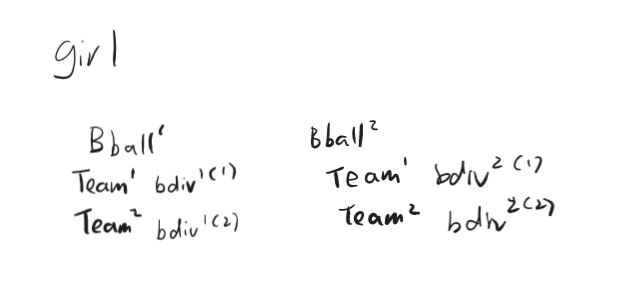 girl
Bball¹
Team¹ bdiv¹⁽¹⁾
Team² bdiv¹⁽²⁾
Bball²
Team¹ bdiv²⁽¹⁾
Team² bdiv²⁽²⁾